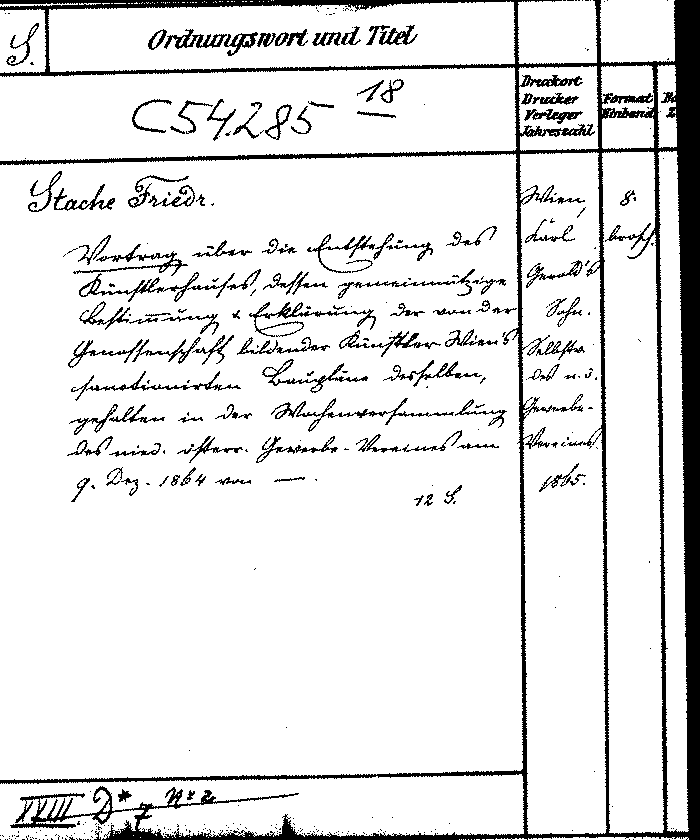 S.
Ordnungswort und Titel
C54.285 18
Druckort
Drucker
Verleger
Jahreszahl
Format
Einband
Stache Friedr.
Vortrag über die Entstehung des
Künstlerhauses, dessen gemeinnützige
Bestimmung & Erklärung der von der
Genossenschaft bildender Künstler Wien's
sanctionirten Baupläne desselben,
gehalten in der Wochenversammlung
des nied. österr. Gewerbe-Vereines am
9. Dez. 1864 von — .
12 S.
Wien,
Karl
Gerold's
Sohn.
Selbstv.
des n. ö.
Gewerbe-
Vereines.
1865.
8.
brosch.
XVIII D* 7 N° 2